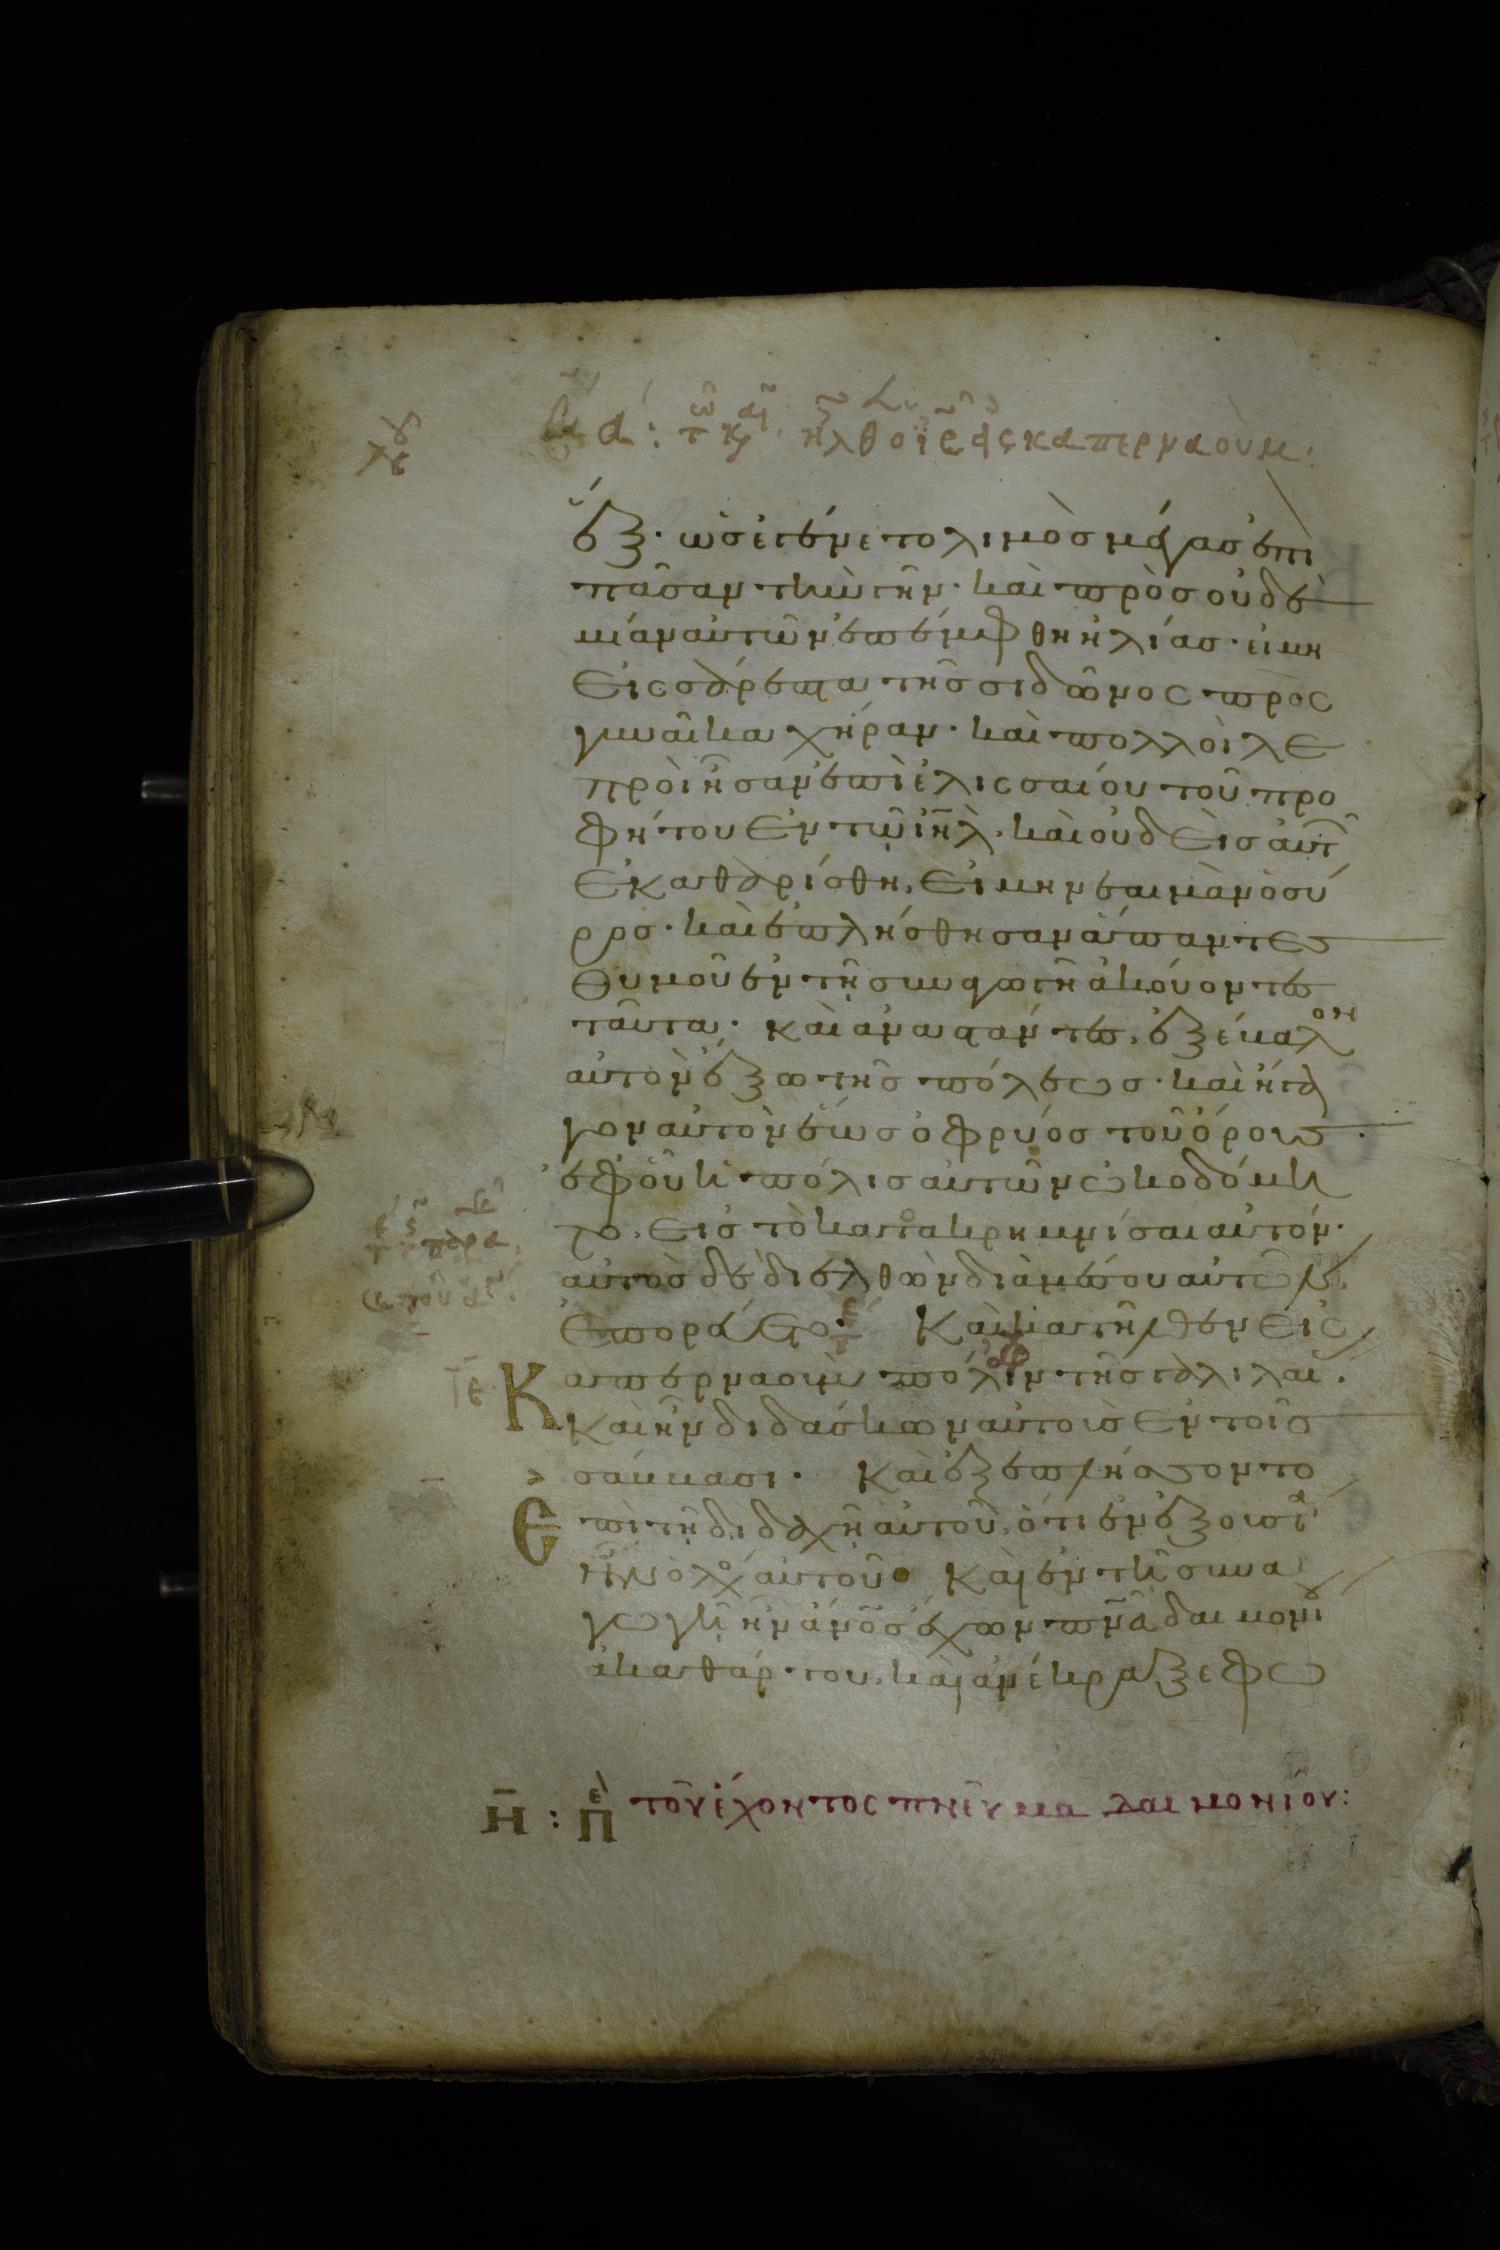 τῶ καιρ ἦλθον ὁ ἰς εἰς καπερναούμ.
ἕξ· ὡς ἐγένετο λιμὸς μέγας ἐπὶ
πᾶσαν τὴν γῆν· καὶ πρὸς οὐδε
μίαν αὐτῶν ἐπέμφθη ἠλίας· εἰ μὴ
εἰς σάρεπτα τῆς σιδῶνος πρὸς
γυναῖκα χήραν· καὶ πολλοὶ λε
προὶ ἦσαν ἐπὶ ἐλισσαίου τοῦ προ
φήτου ἐν τῷ ἰηλ· καὶ οὐδεὶς αὐτ
ἐκαθαρίσθη, εἰ μὴ νεαιμὰν ὁ σύ
ρος· καὶ ἐπλήσθησαν ἅπαντες
θυμοῦ ἐν τῇ συναγωγῇ ἀκούοντες
ταῦτα· καὶ ἀναστάντες, ἐξέβαλον
αὐτὸν ἔξω τῆς πόλεως· καὶ ἤγα
γον αὐτὸν ἕως ὀφρύος τοῦ ὄρους·
ἐφ οὗ ἡ πόλις αὐτῶν ὠκοδόμη
το, εἰς τὸ κατακρημνίσαι αὐτόν·
αὐτὸς δὲ διελθὼν διὰ μέσου αὐτῶν,
ἐπορεύετο· Καὶ κατῆλθεν εἰς
Καπερναοὺμ πόλιν τῆς γαλιλαί·
καὶ ἦν διδάσκων αὐτοὺς ἐν τοῖς
σάββασι· Καὶ ἐξεπλήσσοντο
Ἐπὶ τῇ διδαχῇ αὐτοῦ, ὅτι ἐν ἐξουσί
ἦν ὁ λόγο αὐτοῦ· Καὶ ἐν τῇ συνα
γωγῇ ἦν ἀνος ἔχων πνα δαιμονίου
ἀκαθάρτου, καὶ ἀνέκραξε φω
Η : πε τοῦ ἔχοντος πνεῦμα δαιμονίου: